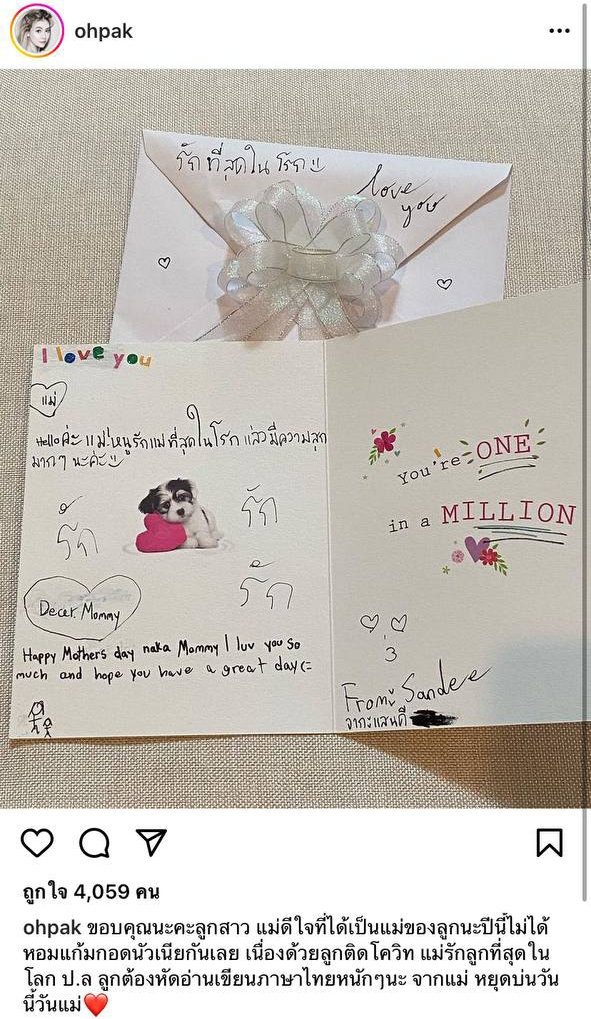 ohpak
รักที่สุดใน โรก
love
you
I love you
แม่
Hello ค่ะ แม่!หนูรักแม่ที่สุดในโรก แล้วมีความสุก
มากๆ นะค่ะ
รัก
รัก
รัก
Decer. Mommy
Happy Mothers day naka Mommy I luv you so
much and hope you have a great day (=
You're ONE
in a MILLION
3
From: Sandee
จากะแสนดี
ถูกใจ 4,059 คน
ohpak ขอบคุณนะคะลูกสาว แม่ดีใจที่ได้เป็นแม่ของลูกนะปีนี้ไม่ได้
หอมแก้มกอดนัวเนียกันเลย เนื่องด้วยลูกติดโควิท แม่รักลูกที่สุดใน
โลก ป.ล ลูกต้องหัดอ่านเขียนภาษาไทยหนักๆนะ จากแม่ หยุดบ่นวัน
นี้วันแม่❤️